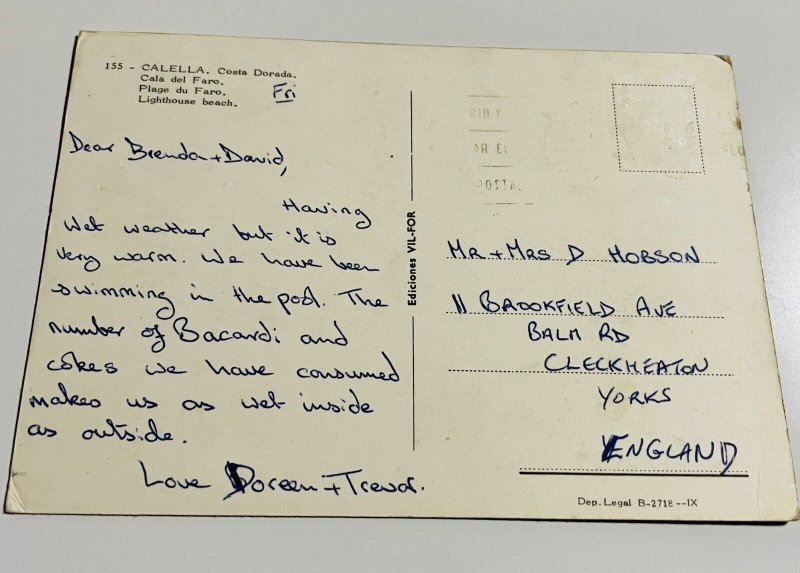 155 - CALELLA. Costa Dorada.
Cala del Faro.
Plage du Faro.
Lighthouse beach.
Fri
Dear Brenda + David,
Having
wet weather but it is
very warm. We have been
swimming in the pool. The
number of Bacardi and
cokes we have consumed
makes us as wet inside
as outside.
Love Doreen + Trevor.
Ediciones VIL-FOR
MR + MRS D HOBSON
11 BROOKFIELD AVE
BALM RD
CLECKHEATON
YORKS
ENGLAND
Dep. Legal B-2718--IX